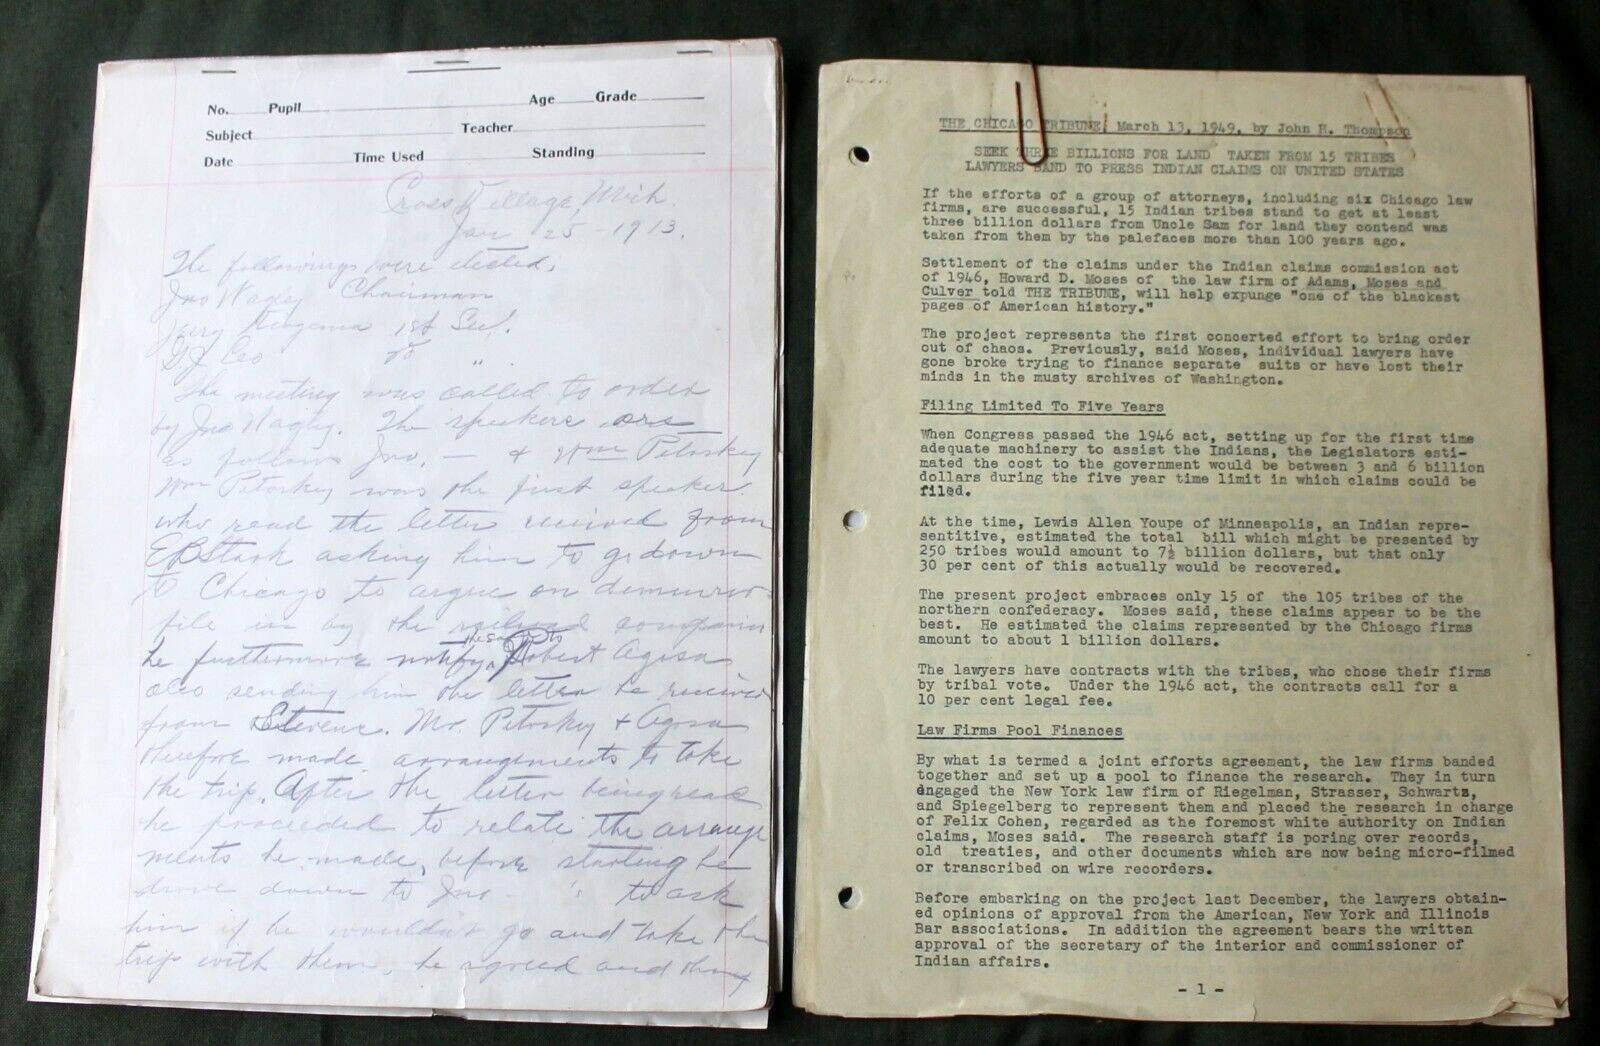 No. Pupil Age Grade
Subject Teacher
Date Time Used Standing
Cross Village, Mich.
Jan 25 - 1913.
The followings were elected;
Jno Wagley Chairman
Jerry 1st Sec'.
G.J. Leo "
The meeting was called to order
by Jno Wagley. The speakers are
as follows Jno, — & Wm Petoskey
Wm Petoskey was the first speaker
who read the letter received from
EB Stark asking him to go down
to Chicago to argue on
file in by the railroad
he furthermore notify the same to Robert Agosa
also sending him the letter he received
from Stevens. Mr. Petoskey & Agosa
therefore made arrangements to take
the trip. After the letter being read
he proceeded to relate the arrange
ments he made, before starting he
drove down to Jno to ask
him if he wouldn't go and take the
trip with them, he agreed and they
THE CHICAGO TRIBUNE, March 13, 1949, by John H. Thompson
SEEK THREE BILLIONS FOR LAND TAKEN FROM 15 TRIBES
LAWYERS BAND TO PRESS INDIAN CLAIMS ON UNITED STATES
If the efforts of a group of attorneys, including six Chicago law
firms, are successful, 15 Indian tribes stand to get at least
three billion dollars from Uncle Sam for land they contend was
taken from them by the palefaces more than 100 years ago.
Settlement of the claims under the Indian claims commission act
of 1946, Howard D. Moses of the law firm of Adams, Moses and
Culver told THE TRIBUNE, will help expunge "one of the blackest
pages of American history."
The project represents the first concerted effort to bring order
out of chaos. Previously, said Moses, individual lawyers have
gone broke trying to finance separate suits or have lost their
minds in the musty archives of Washington.
Filing Limited To Five Years
When Congress passed the 1946 act, setting up for the first time
adequate machinery to assist the Indians, the Legislators esti-
mated the cost to the government would be between 3 and 6 billion
dollars during the five year time limit in which claims could be
filed.
At the time, Lewis Allen Youpe of Minneapolis, an Indian repre-
sentitive, estimated the total bill which might be presented by
250 tribes would amount to 7½ billion dollars, but that only
30 per cent of this actually would be recovered.
The present project embraces only 15 of the 105 tribes of the
northern confederacy. Moses said, these claims appear to be the
best. He estimated the claims represented by the Chicago firms
amount to about 1 billion dollars.
The lawyers have contracts with the tribes, who chose their firms
by tribal vote. Under the 1946 act, the contracts call for a
10 per cent legal fee.
Law Firms Pool Finances
By what is termed a joint efforts agreement, the law firms banded
together and set up a pool to finance the research. They in turn
engaged the New York law firm of Riegelman, Strasser, Schwartz,
and Spiegelberg to represent them and placed the research in charge
of Felix Cohen, regarded as the foremost white authority on Indian
claims, Moses said. The research staff is poring over records,
old treaties, and other documents which are now being micro-filmed
or transcribed on wire recorders.
Before embarking on the project last December, the lawyers obtain-
ed opinions of approval from the American, New York and Illinois
Bar associations. In addition the agreement bears the written
approval of the secretary of the interior and commissioner of
Indian affairs.
- 1 -